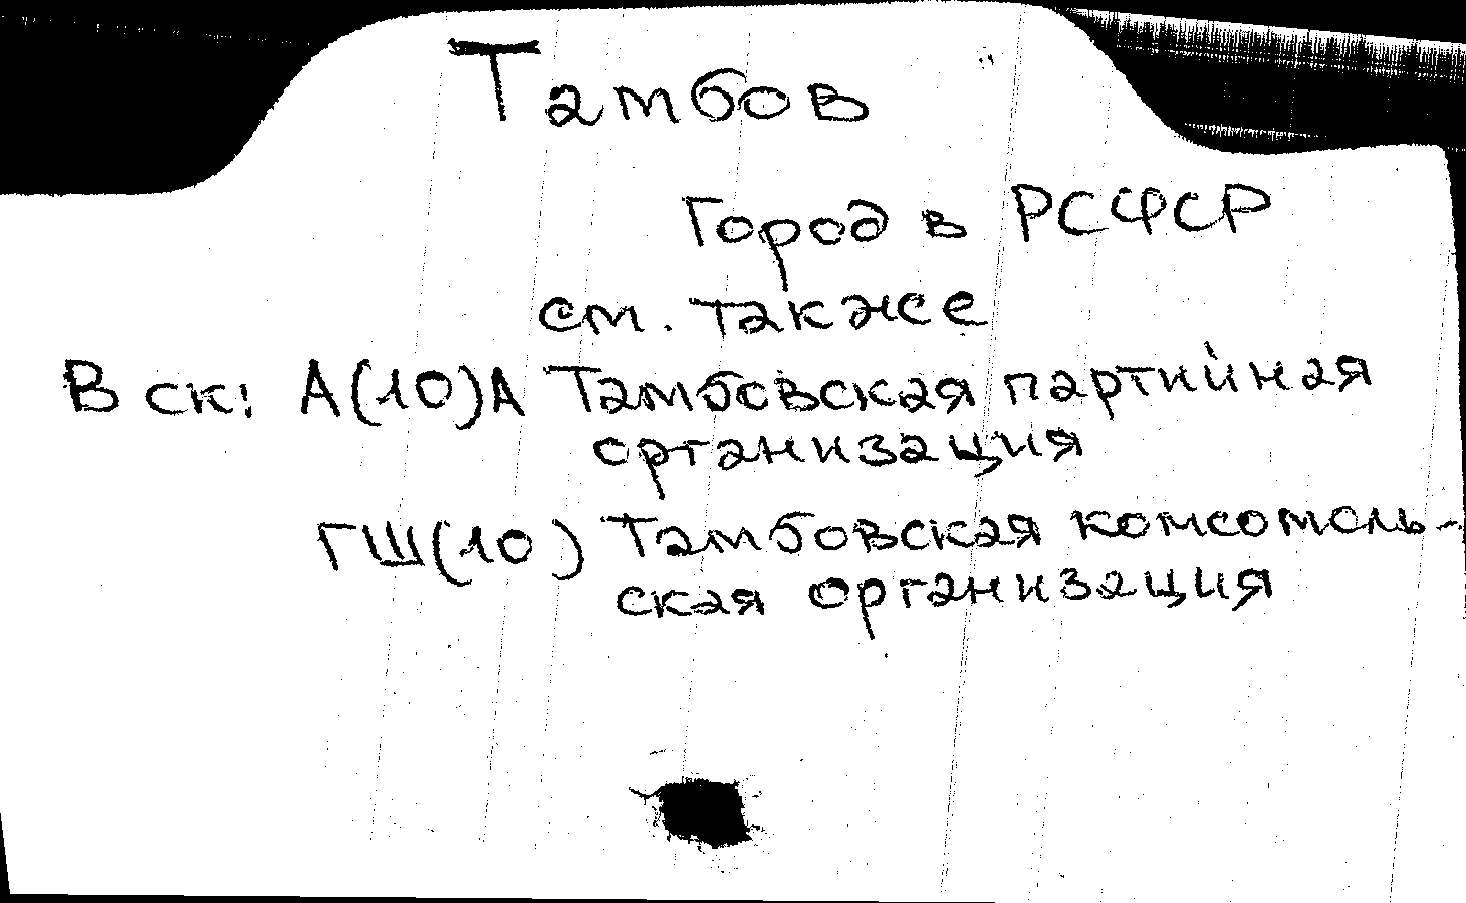 Тамбов
Город в РСФСР
см. также
В ск: А(10)А Тамбовская партийная
организация
ГШ(10) Тамбовская комсомоль-
ская организация